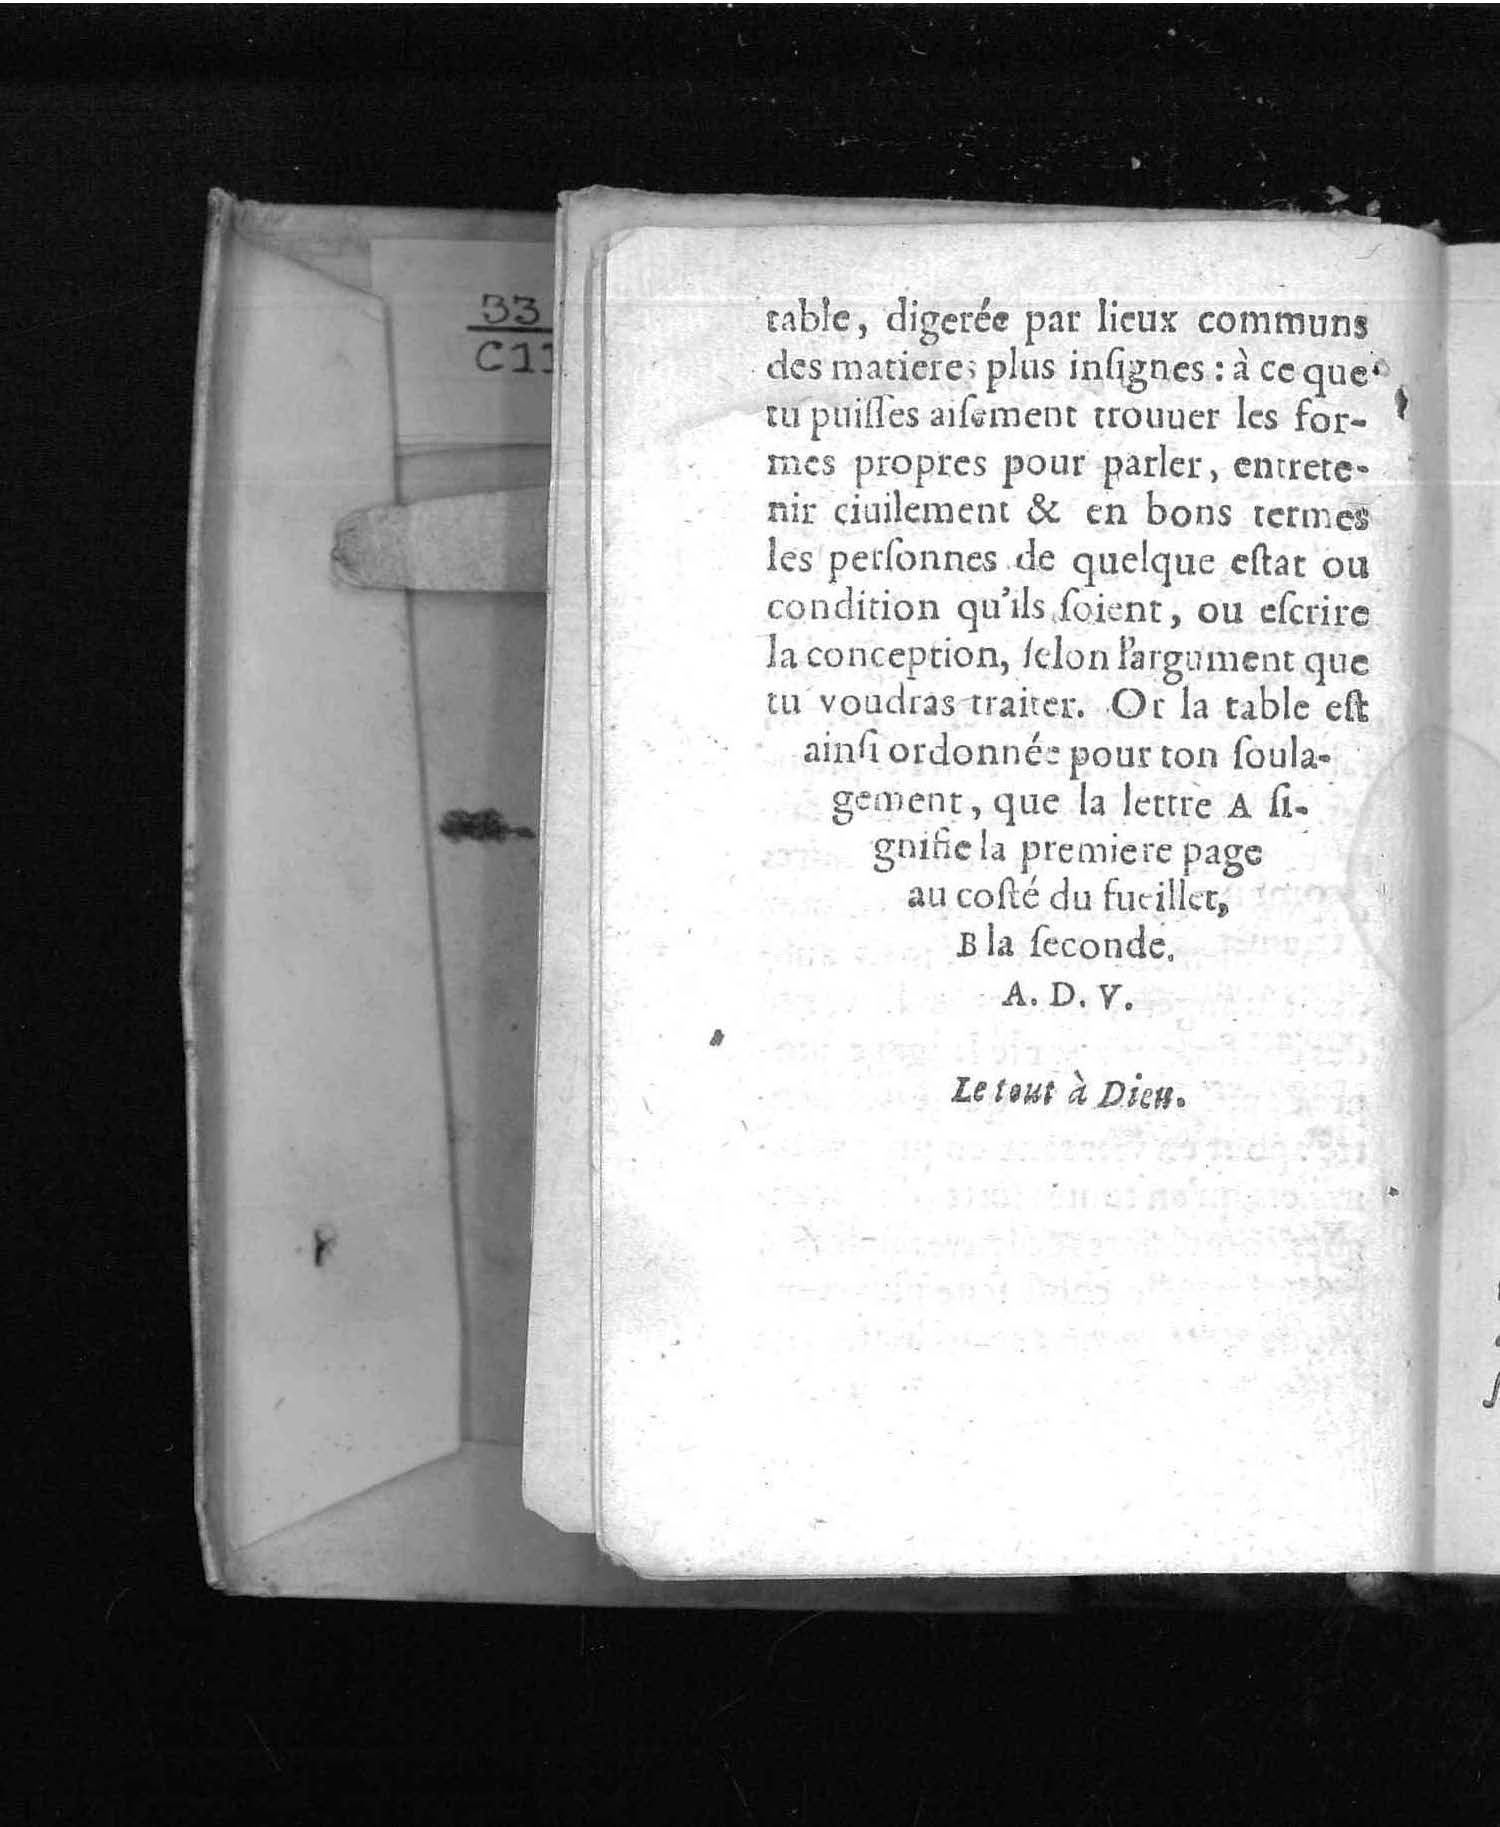 33
C11
table, digerée par lieux communs
des matieres plus inſignes : à ce que
tu puiſſes aiſement trouuer les for-
mes propres pour parler, entrete-
nir ciuilement & en bons termes
les perſonnes de quelque eſtat ou
condition qu'ils ſoient, ou eſcrire
la conception, ſelon l'argument que
tu voudras traiter. Or la table eſt
ainſi ordonnée pour ton ſoula-
gement, que la lettre A ſi-
gnifie la premiere page
au coſté du fueillet,
B la ſeconde.
A. D. V.
Le tout à Dieu.